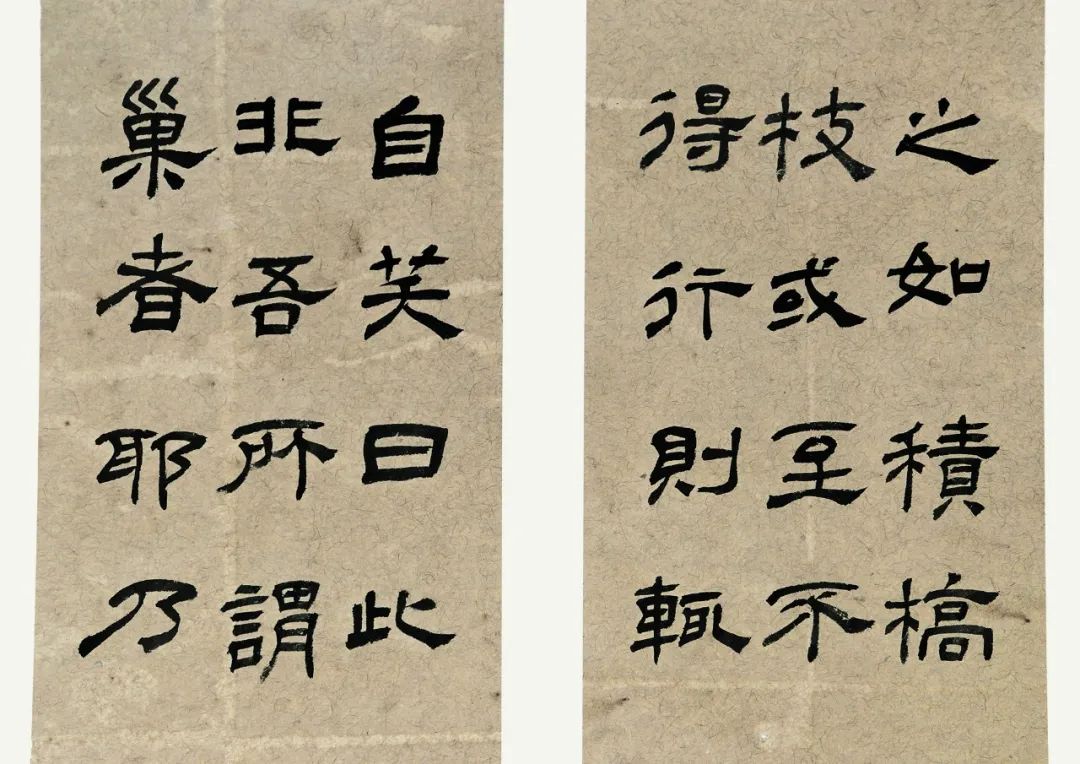 之如積槁
枝或至不
得行則輒
自芺曰此
非吾所謂
巢者耶乃